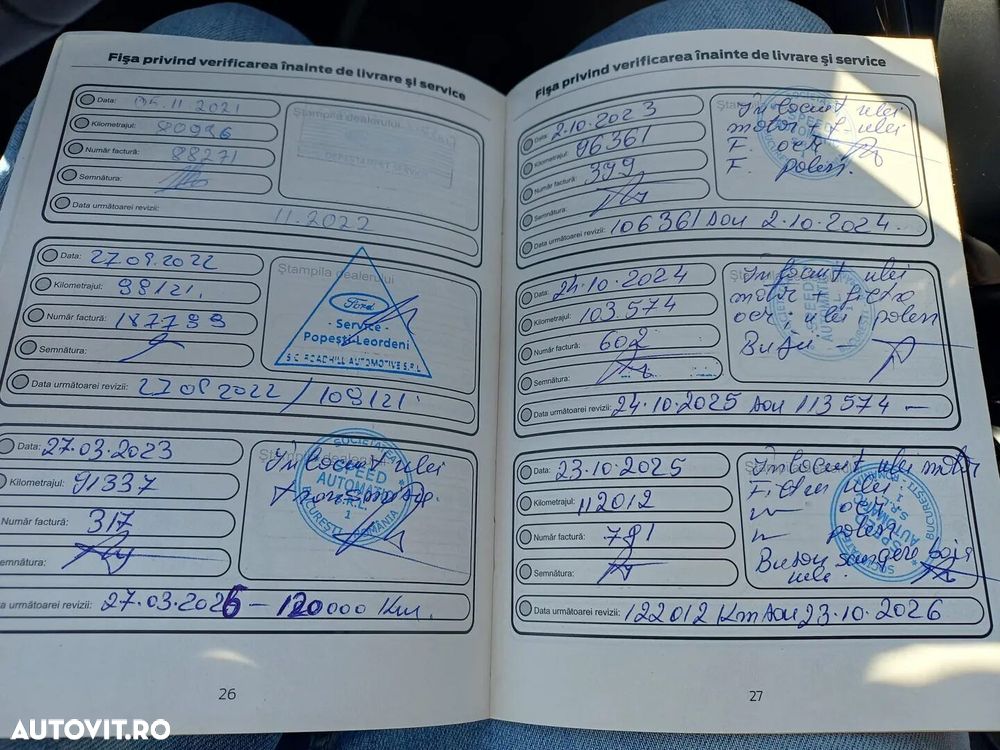 Fișa privind verificarea înainte de livrare și service
Data: 05.11.2021
Kilometrajul: 80996
Număr factură: 88271
Semnătura:
Data următoarei revizii: 11.2022
Ștampila dealerului
Data: 27.09.2022
Kilometrajul: 99121.
Număr factură: 187799
Semnătura:
Data următoarei revizii: 27 09 2022 / 109121
Ștampila dealerului
Ford
- Service -
Popești-Leordeni
S.C. ROADHILL AUTOMOTIVE S.R.L
Data: 27.03.2023
Kilometrajul: 91337
Număr factură: 317
Semnătura:
Data următoarei revizii: 27.03.2026 - 120000 Km.
Înlocuit ulei
SPEED
AUTOMAT
S.R.L.
1
BUCUREȘTI - ROMÂNIA
26
Fișa privind verificarea înainte de livrare și service
Data: 2.10.2023
Kilometrajul: 96361
Număr factură: 399
Semnătura:
Data următoarei revizii: 106361 sau 2.10.2024
Înlocuit ulei
motor + f. ulei
F. aer
F. polen.
Data: 24.10.2024
Kilometrajul: 103.574
Număr factură: 602
Semnătura:
Data următoarei revizii: 24.10.2025 sau 113574 -
Înlocuit ulei
motor + filtru
aer, ulei polen
Data: 23.10.2025
Kilometrajul: 112012
Număr factură: 791
Semnătura:
Data următoarei revizii: 122012 Km sau 23.10.2026
Înlocuit ulei motor
Filtru ulei
aer
polen
Bușon scurgere baja
ulei.
27
AUTOVIT.RO